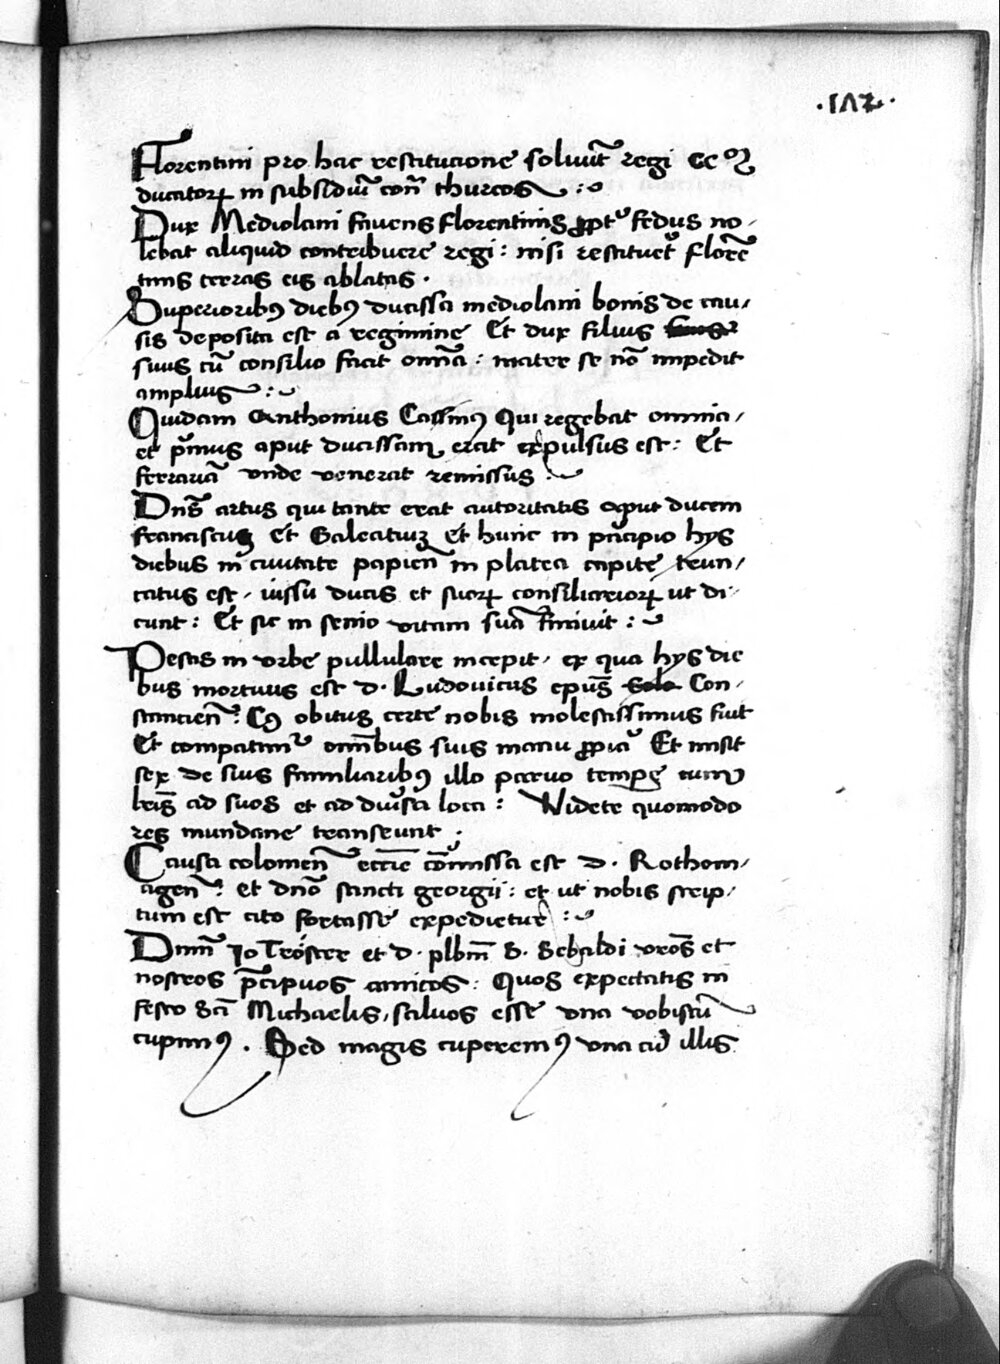 ·187·
Florentini pro hac restitucione soluũt regi CC ᵐ
ducatoꝝ in subsidiũ cont̃ thurcos :~
Dux Mediolani fauens florentinis ꝓpt᷑ fedus no-
lebat aliquid contribuere regi : nisi restituet᷑ florẽ
tinis terras eis ablatas .
Superioribꝰ diebꝰ ducissa mediolani bonis de cau/
sis deposita est a regimine Et dux filius
suus cũ consilio facit om̃ia : mater se nõ impedit
amplius :~
Quidam Anthonius Cassinꝰ Qui regebat omnia /
et p̃mus aput ducissam erat expulsus est : Et
ferrariã vnde venerat remissus :~
Dñs artus qui tante erat autoritatis aput ducem
franciscuȝ Et Galeatiuȝ Et hunc in pñcipio hys
diebus in ciuitate papieñ in platea capite trun /
catus est , iussu ducis et suoꝝ consiliarioꝝ ut di-
cunt : Et sic in senio vitam suã finiuit :~
Pestis in vrbe pullulare incepit , ex qua hys die
bus mortuus est d . Ludouicus ep̃us Con-
stancieñ : Cꝰ obitus certe nobis molestissimus fuit
Et compatimᷣ om̃ibus suis manu ꝓpia Et misit
sex de suis familiaribꝰ illo paruo tempe cum
lr̃is ad suos et ad diu᷑sa loca : Videte quomodo
res mundane transeunt .
Causa colomeñ ecc̃ie cõmissa est d . Rothom-
ageñ : et dño sancti georgii : et ut nobis scrip-
tum est cito fortasse expedietur :~
Dnm̃ Jo Tröster et d . plbm̃ S . Sebaldi vr̃os et
nostros p̃cipuos amicos : Quos expectatis in
festo S̃ci Michaelis , saluos esse vna vobiscũ
cupimꝰ . Sed magis cuperemꝰ vna cũ illis